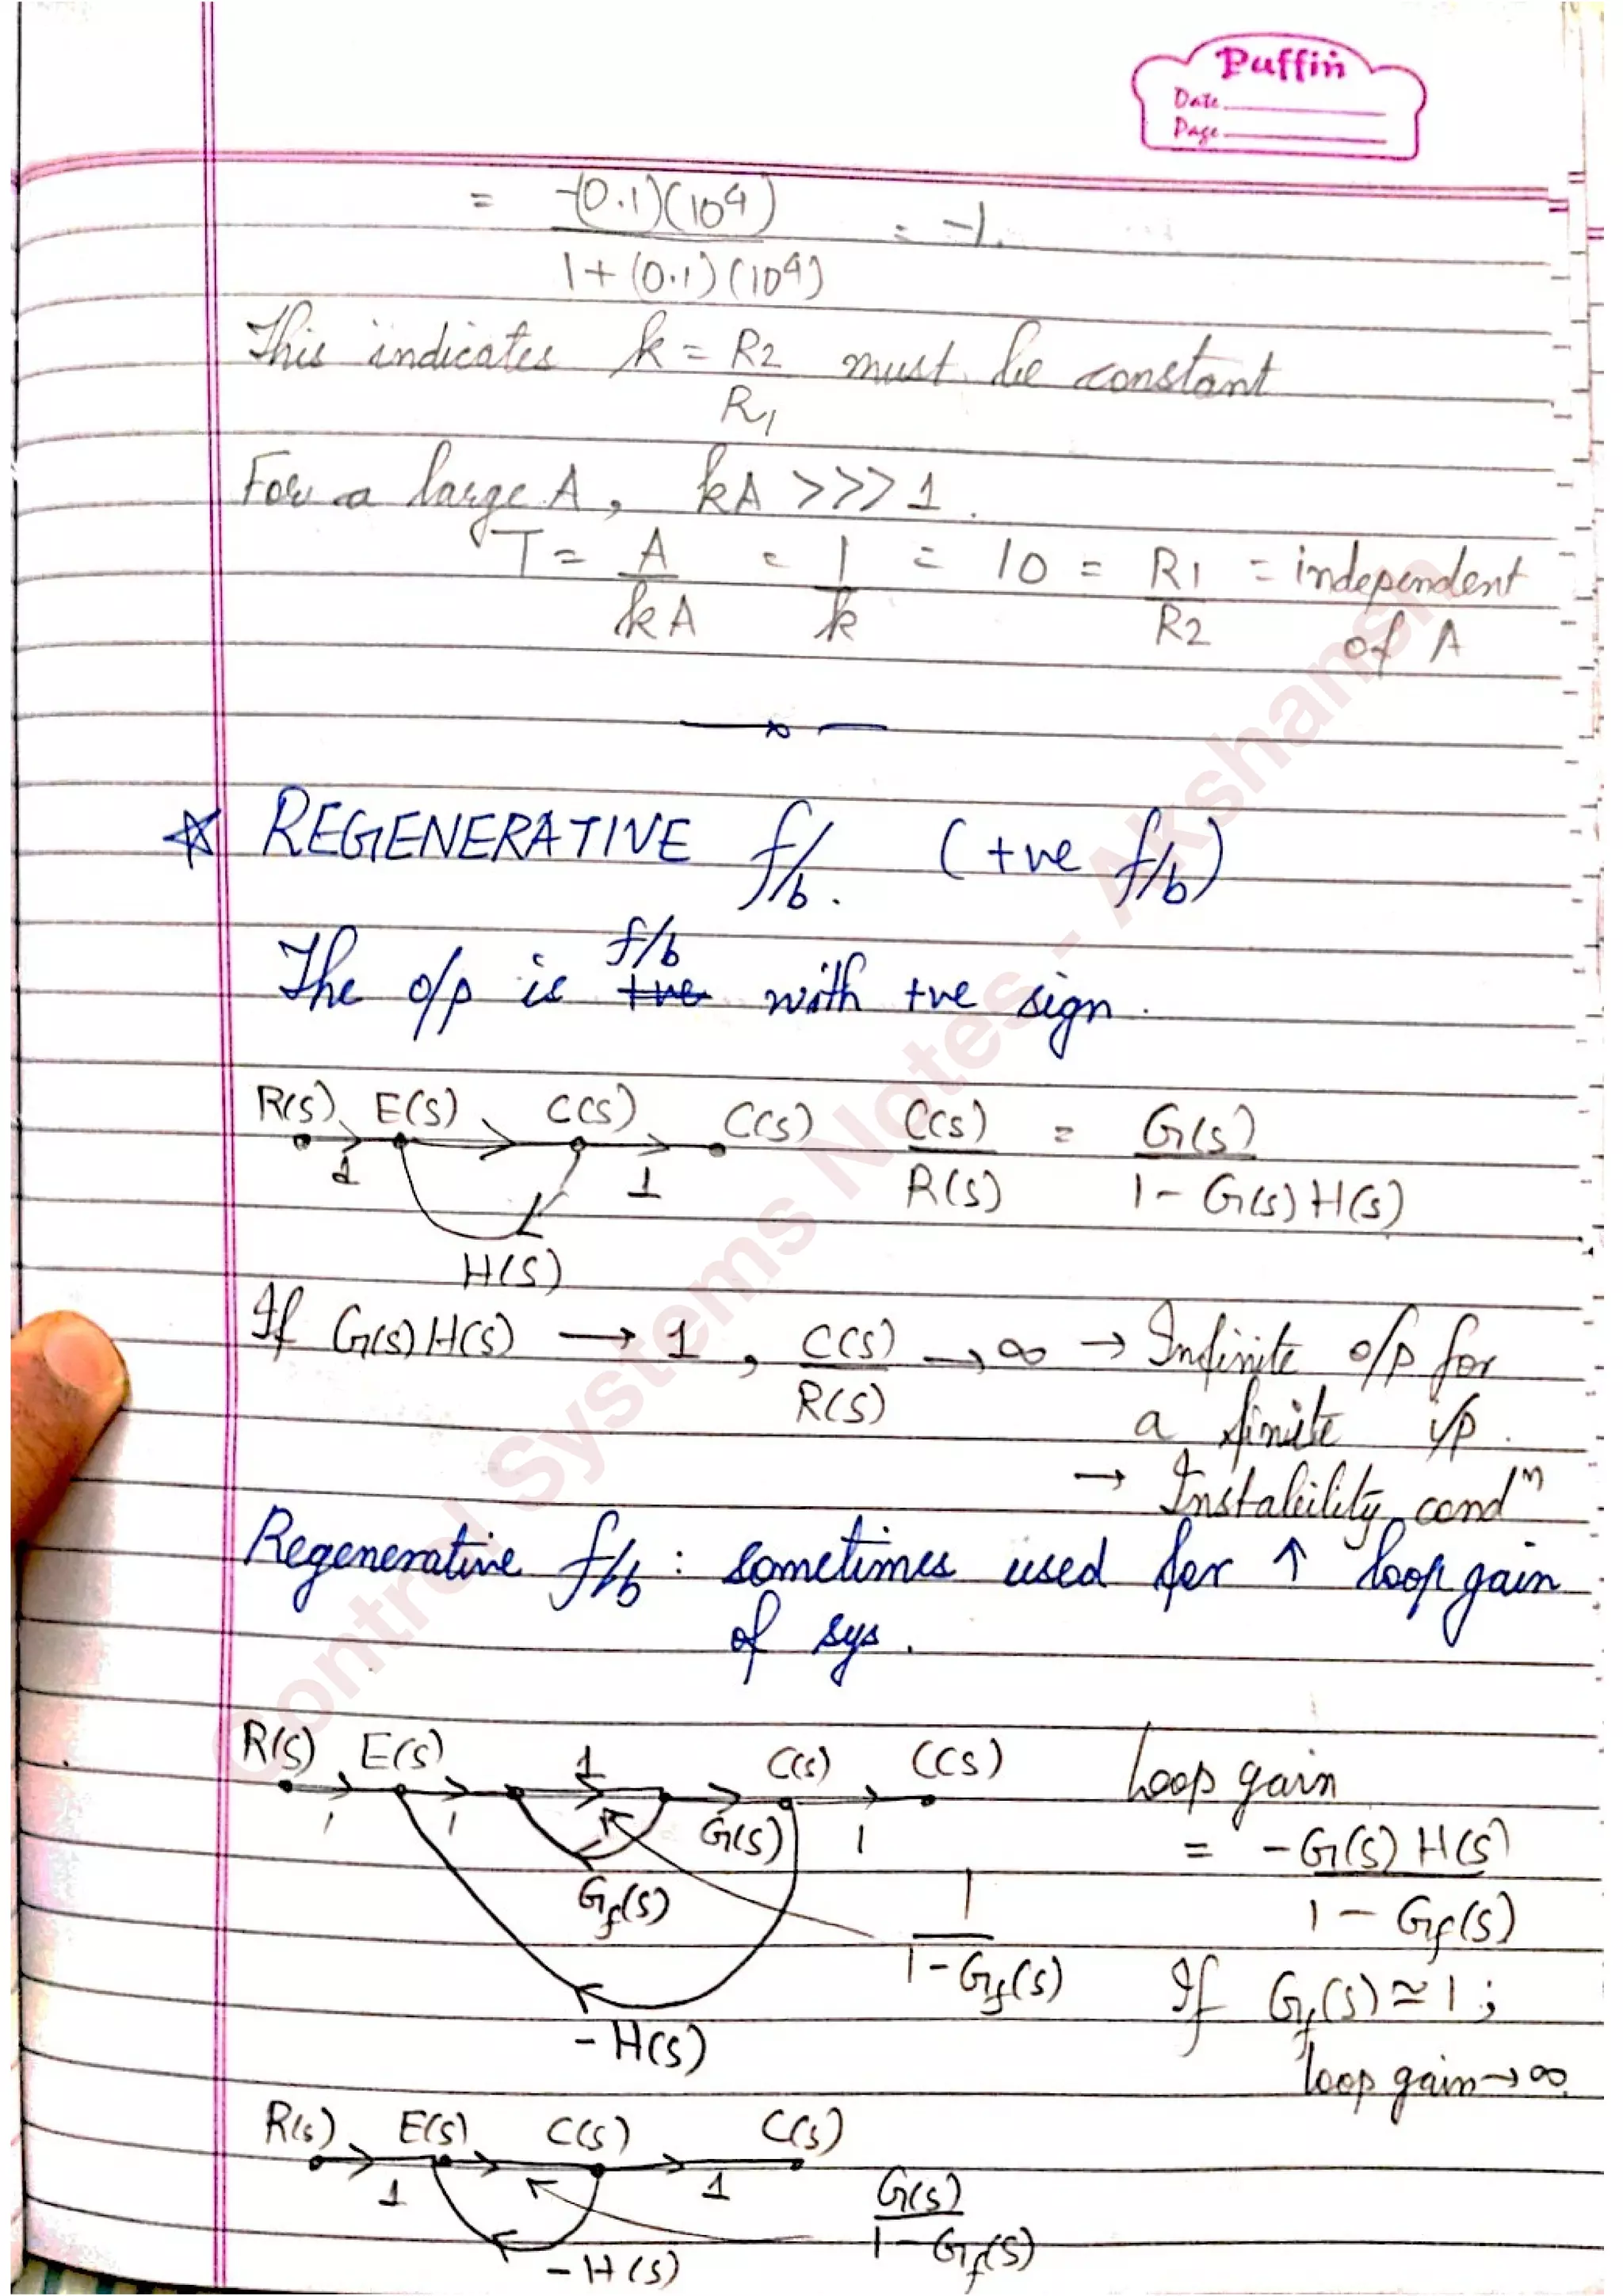 Puffin
Date
Page
= -(0.1)(10⁴) / 1+(0.1)(10⁴) = -1.
This indicates k = R2/R1 must be constant
For a large A, kA >>> 1.
T = A/kA = 1/k = 10 = R1/R2 = independent
of A
REGENERATIVE f/b. (+ve f/b)
The o/p is f/b with +ve sign.
R(s) E(s) C(s) C(s) C(s)/R(s) = G(s) / 1- G(s)H(s)
1 1
H(s)
If G(s)H(s) → 1, C(s)/R(s) → ∞ → Infinite o/p for
a finite i/p.
→ Instability condⁿ
Regenerative f/b : sometimes used for ↑ loop gain
of sys.
R(s) E(s) 1 C(s) C(s) Loop gain
1 1 G(s) 1 = -G(s)H(s) / 1 - Gf(s)
Gf(s)
1 / 1-Gf(s) If Gf(s) ≃ 1 ;
-H(s) loop gain → ∞
R(s) E(s) C(s) C(s)
1 1 G(s) / 1-Gf(s)
-H(s)
Control Systems Notes - Akshansh